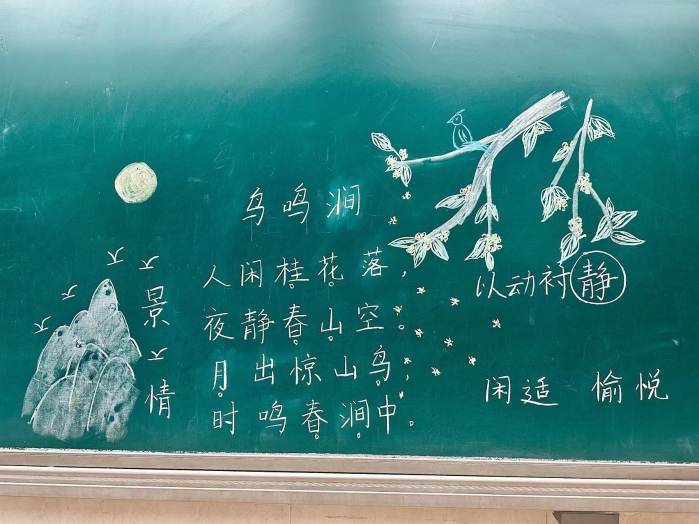 鸟鸣涧
人闲桂花落，
夜静春山空。
月出惊山鸟，
时鸣春涧中。
景
情
以动衬静
闲适 愉悦